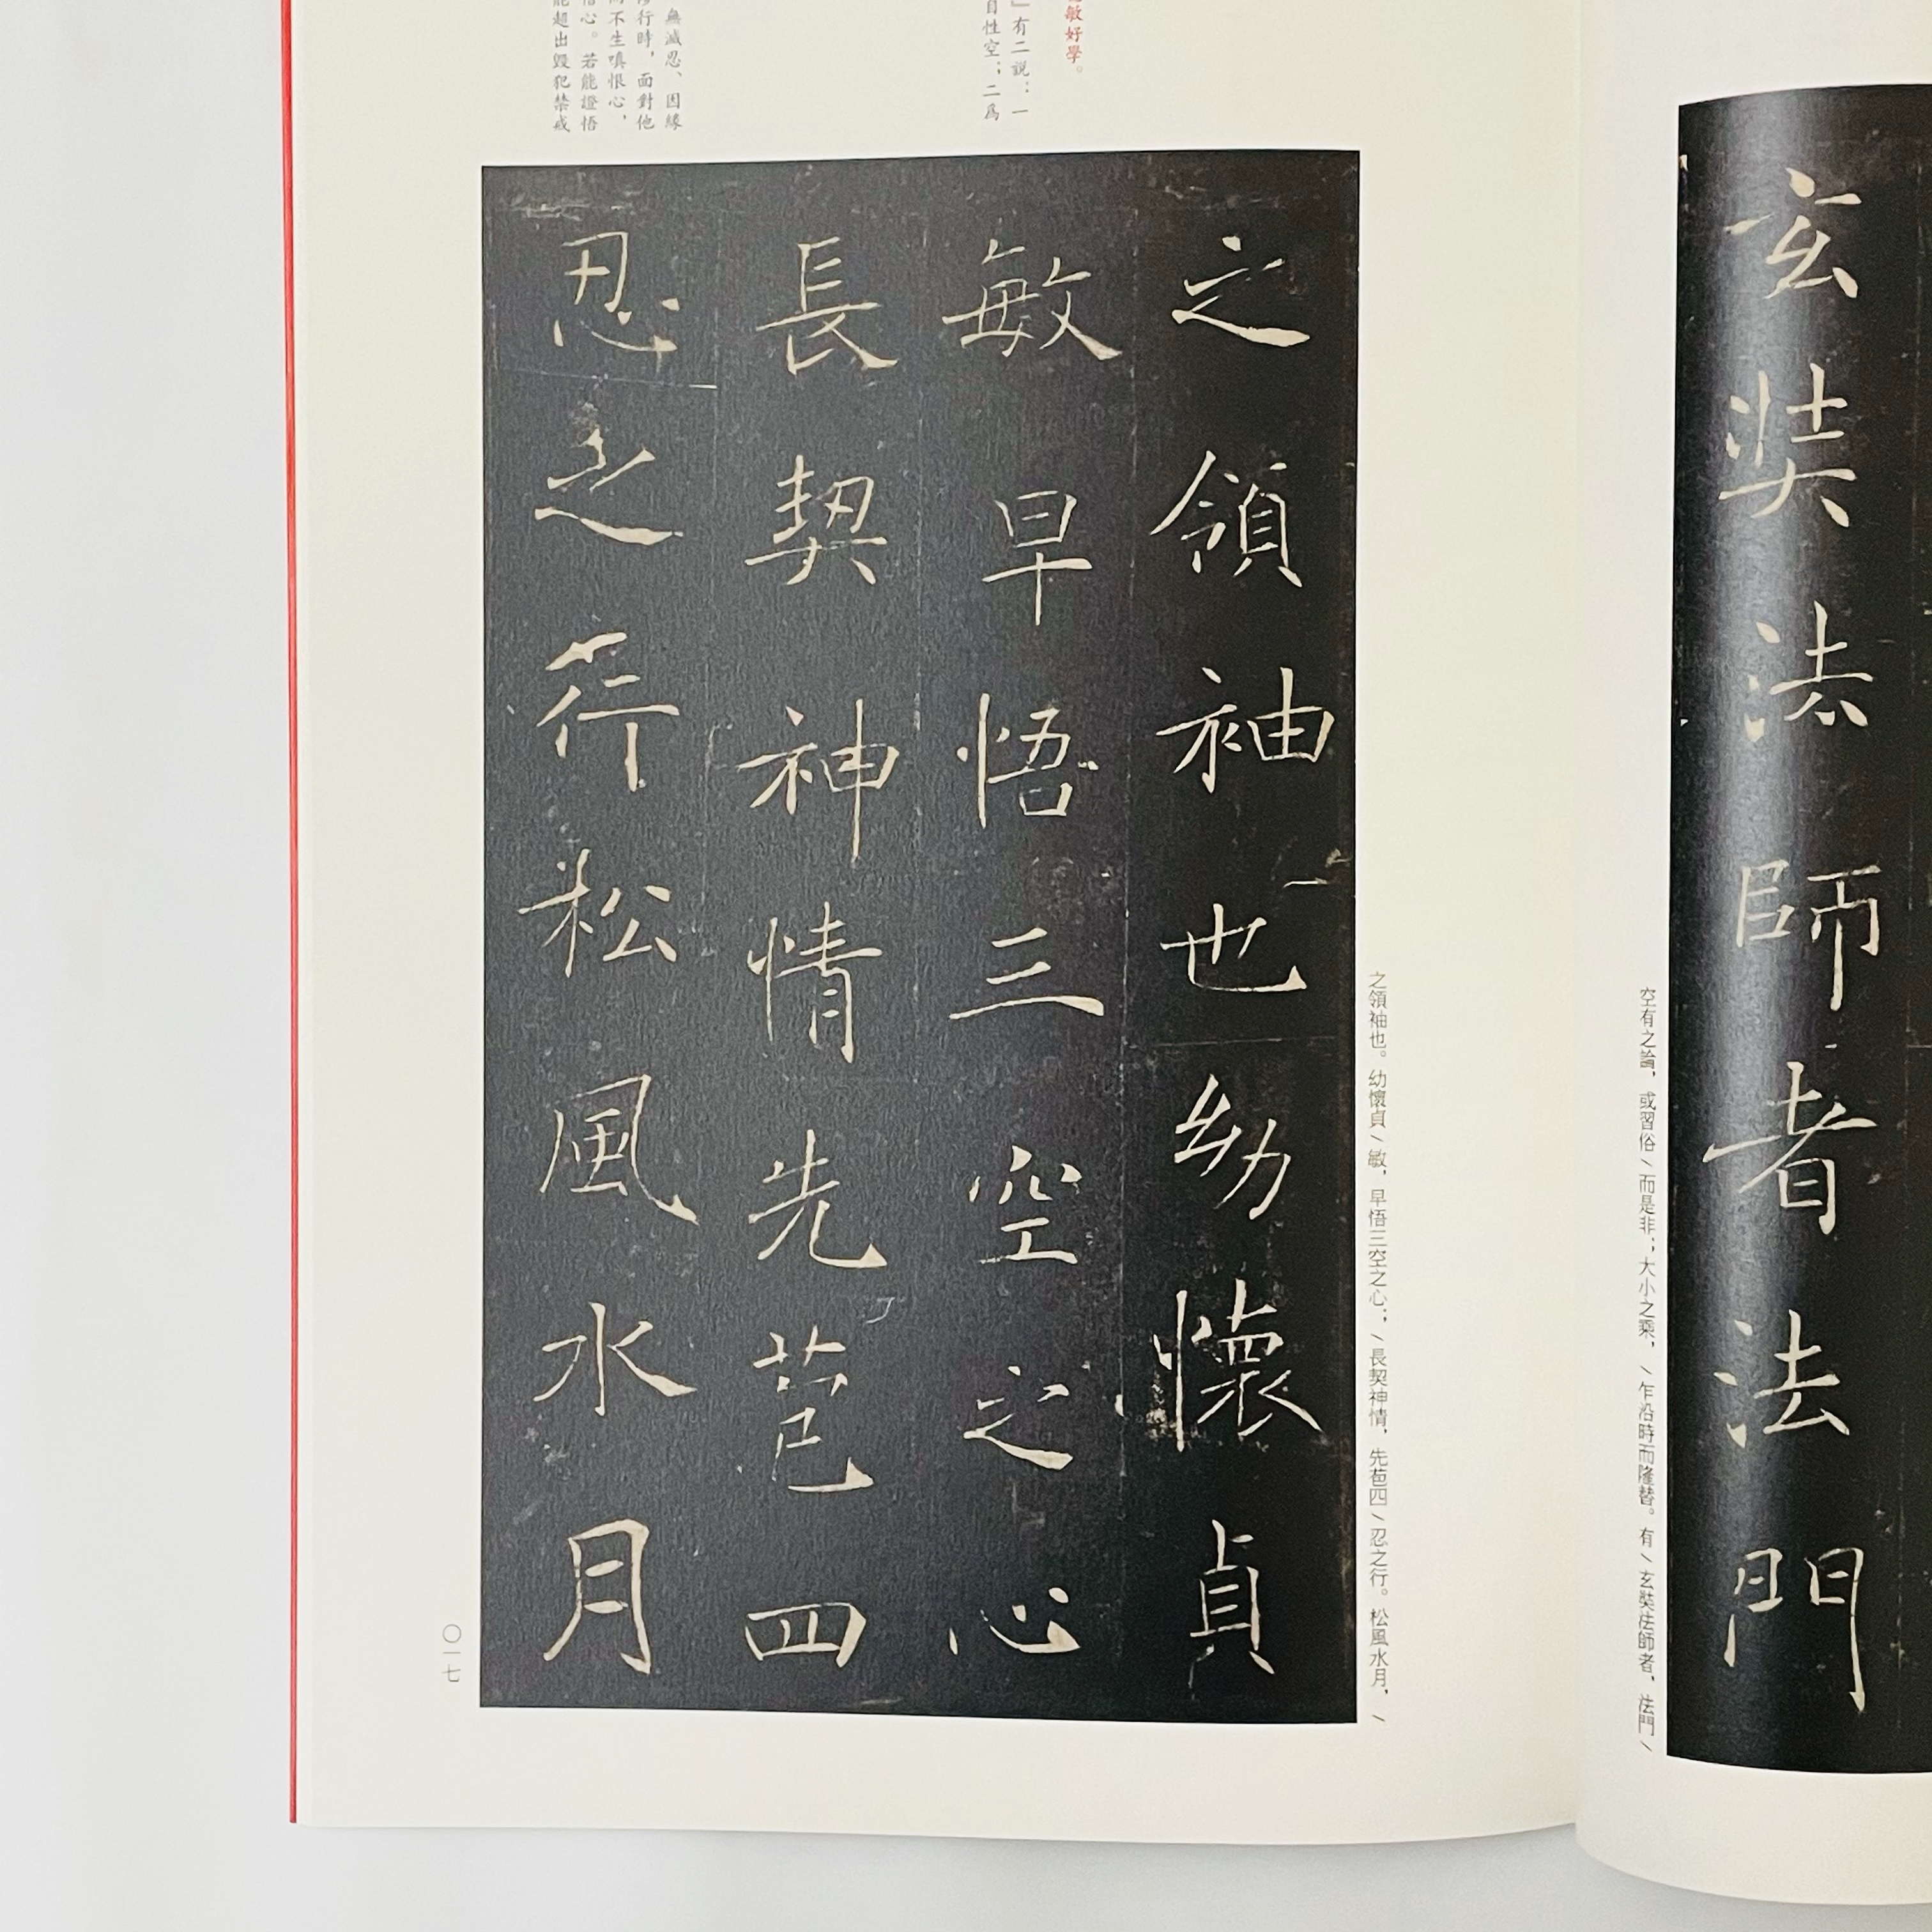 玄奘法師者法門
空有之論，或習俗＼而是非；大小之乘，＼乍沿時而隆替。有＼玄奘法師者，法門＼
敏好學。
』有二説：一
自性空；二爲
無滅忍、因緣
行時，面對他
不生嗔恨心，
心。若能證悟
能超出毀犯禁戒
之領袖也幼懷貞
敏早悟三空之心
長契神情先苞四
忍之行松風水月
之領袖也。幼懷貞＼敏，早悟三空之心；＼長契神情，先苞四＼忍之行。松風水月，＼
〇一七